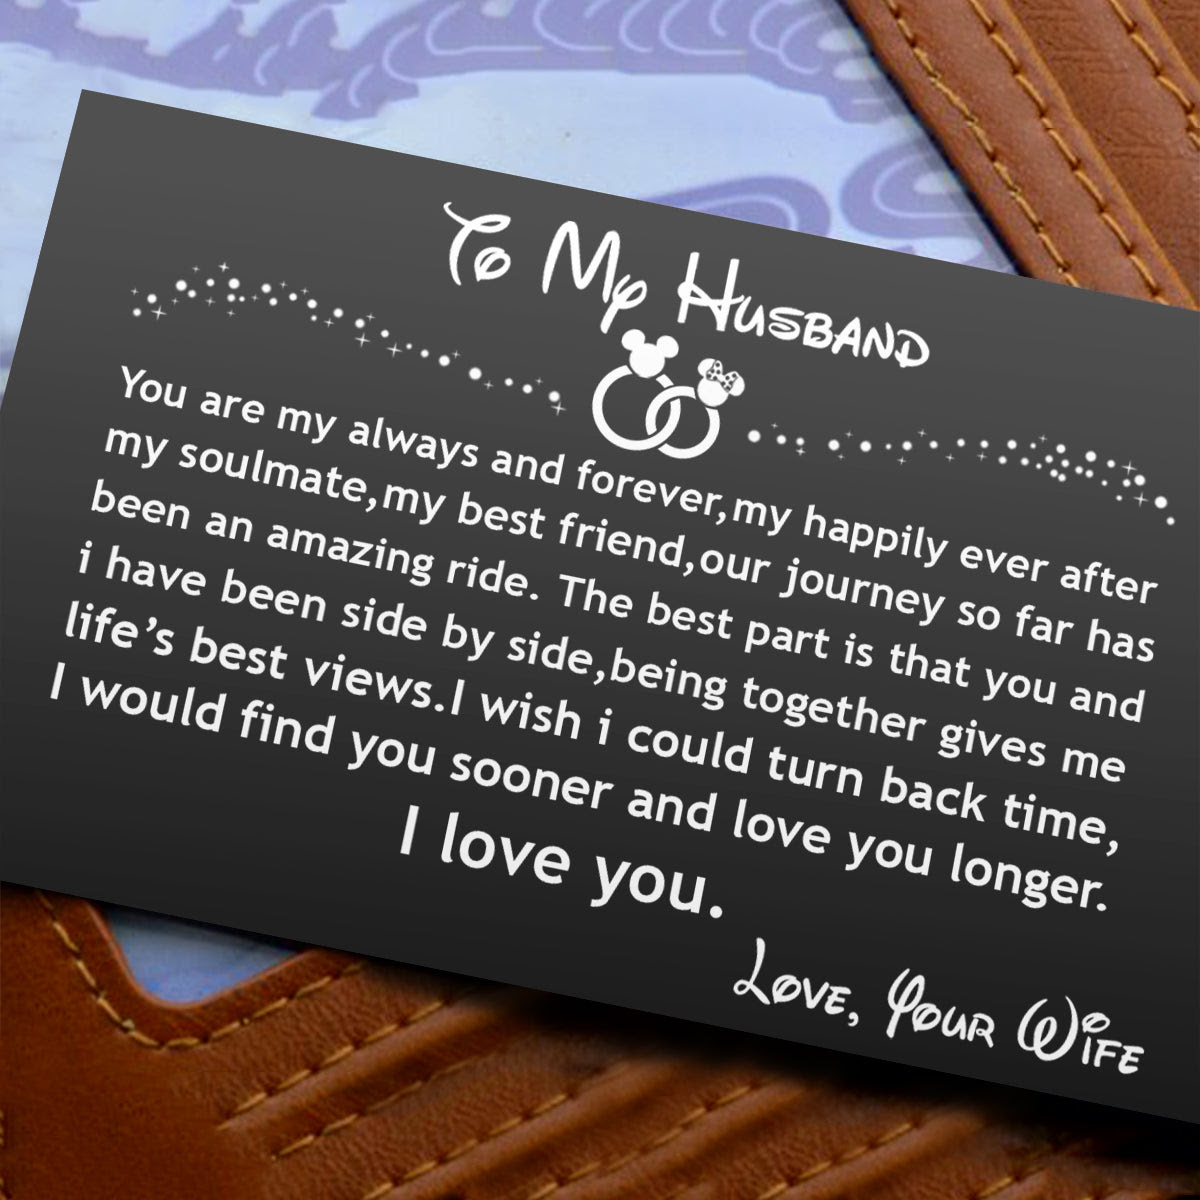 To My Husband
You are my always and forever,my happily ever after
my soulmate,my best friend,our journey so far has
been an amazing ride. The best part is that you and
i have been side by side,being together gives me
life's best views.I wish i could turn back time,
I would find you sooner and love you longer.
I love you.
Love, Your Wife